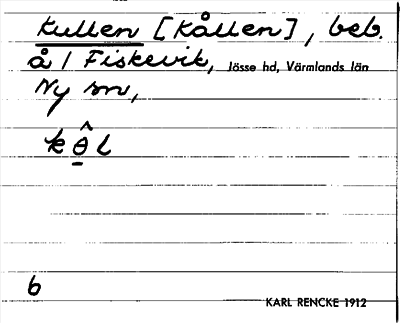 Kullen [Kållen], beb.
å 1 Fiskevik, Jösse hd, Värmlands län
Ny sn,
kθ̠̂l
b
KARL RENCKE 1912